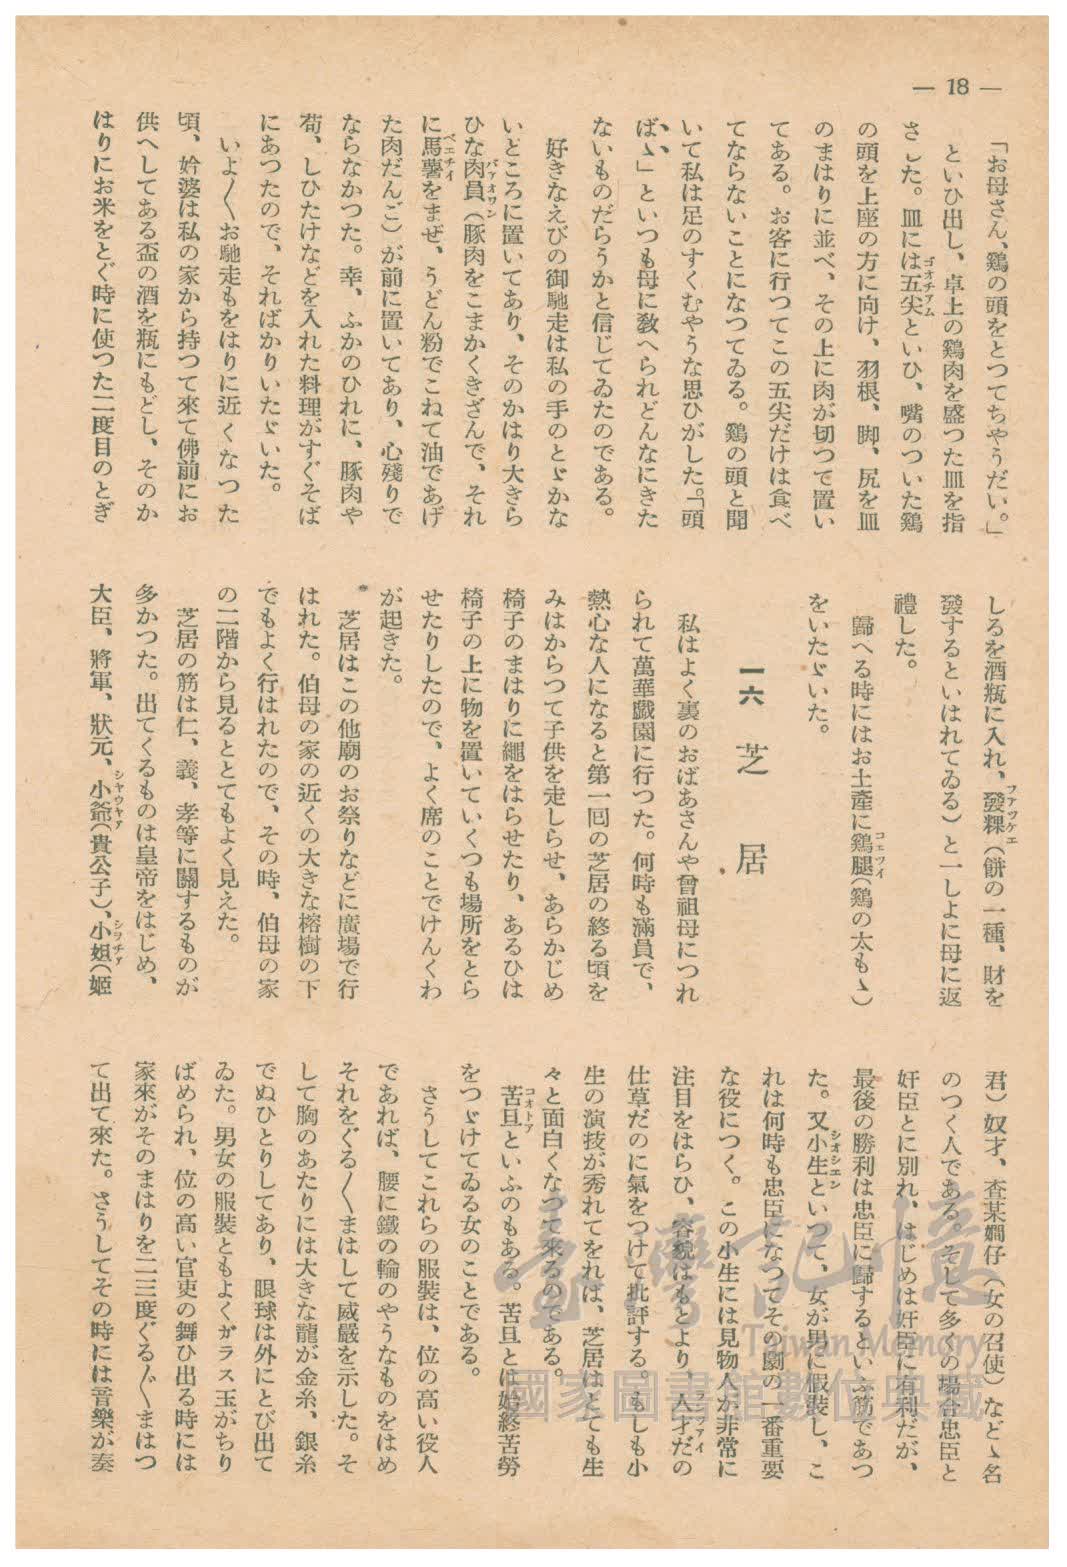 — 18 —
「お母さん、鷄の頭をとつてちやうだい。」
といひ出し、卓上の鷄肉を盛つた皿を指
さした。皿には五尖といひ、嘴のついた鷄
ゴオチアム
の頭を上座の方に向け、羽根、脚、尻を皿
のまはりに並べ、その上に肉が切つて置い
てある。お客に行つてこの五尖だけは食べ
てならないことになつてゐる。鷄の頭と聞
いて私は足のすくむやうな思ひがした。「頭
ば、、」といつも母に敎へられどんなにきた
ないものだらうかと信じてゐたのである。
好きなえびの御馳走は私の手のとゞかな
いところに置いてあり、そのかはり大きら
ひな肉員（豚肉をこまかくきざんで、それ
バァオワン
に馬薯をまぜ、うどん粉でこねて油であげ
ベエチイ
た肉だんご）が前に置いてあり、心殘りで
ならなかつた。幸、ふかのひれに、豚肉や
筍、しひたけなどを入れた料理がすぐそば
にあつたので、そればかりいたゞいた。
いよ〳〵お馳走もをはりに近くなつた
頃、妗婆は私の家から持つて來て佛前にお
供へしてある盃の酒を瓶にもどし、そのか
はりにお米をとぐ時に使つた二度目のとぎ
しるを酒瓶に入れ、發粿（餅の一種、財を
ファツケエ
發するといはれてゐる）と一しよに母に返
禮した。
歸へる時にはお土產に鷄腿（鷄の太もゝ）
コェツイ
をいたゞいた。
一六 芝居
私はよく裏のおばあさんや曾祖母につれ
られて萬華戲園に行つた。何時も滿員で、
熱心な人になると第一回の芝居の終る頃を
みはからつて子供を走しらせ、あらかじめ
椅子のまはりに繩をはらせたり、あるひは
椅子の上に物を置いていくつも場所をとら
せたりしたので、よく席のことでけんくわ
が起きた。
芝居はこの他廟のお祭りなどに廣場で行
はれた。伯母の家の近くの大きな榕樹の下
でもよく行はれたので、その時、伯母の家
の二階から見るととてもよく見えた。
芝居の筋は仁、義、孝等に關するものが
多かつた。出てくるものは皇帝をはじめ、
大臣、將軍、狀元、小爺（貴公子）、小姐（姬
シヤウヤァ
シヲチァ
君）奴才、査某嫺仔（女の召使）などゝ名
のつく人である。そして多くの場合忠臣と
奸臣とに別れ、はじめは奸臣に有利だが、
最後の勝利は忠臣に歸するといふ筋であつ
た。又小生といつて、女が男に假裝し、こ
シオシエン
れは何時も忠臣になつてその劇の一番重要
な役につく。この小生には見物人が非常に
注目をはらひ、容貌はもとより、人才だの
ランツアイ
仕草だのに氣をつけて批評する。もしも小
生の演技が秀れてをれば、芝居はとても生
々と面白くなつて來るのである。
苦旦といふのもある。苦旦とは始終苦勞
コオトア
をつゞけてゐる女のことである。
さうしてこれらの服裝は、位の高い役人
であれば、腰に鐵の輪のやうなものをはめ
それをぐる〳〵まはして威嚴を示した。そ
して胸のあたりには大きな龍が金糸、銀糸
でぬひとりしてあり、眼球は外にとび出て
ゐた。男女の服裝ともよくガラス玉がちり
ばめられ、位の高い官吏の舞ひ出る時には
家來がそのまはりを二三度ぐる〳〵まはつ
て出て來た。さうしてその時には音樂が奏
臺灣記憶
Taiwan Memory
國家圖書館數位典藏